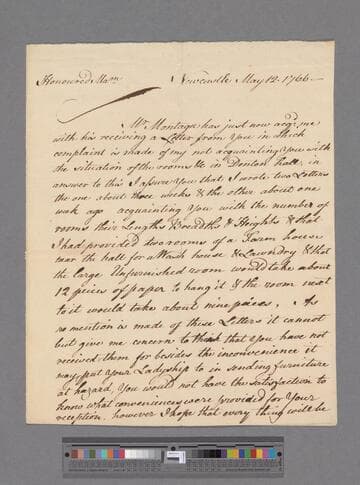 Honoured Mam Newcastle May 12. 1766.
Mr. Montagu has just now acqd. me
with his receiving a Letter from You in which
complaint is made of my not acquainting You with
the situation of the rooms &c in Denton hall, in
answer to this I assure You that I wrote two Letters
the one about three weeks & the other about one
week ago acquainting You with the number of
rooms their Lengths Breadths & Heights & that
I had provided two rooms of a Farm house
near the hall for a Wash house & Laundry & that
the large Unfurnished room would take about
12 pieces of paper to hang it & the room next
to it would take about nine pieces. As
no mention is made of these Letters it cannot
but give me concern to think that You have not
received them for besides the inconvenience it
may put your Ladyship to in sending furniture
at hazard, You would not have the satisfaction to
know what conveniences were provided for Your
reception. however I hope that every thing will be